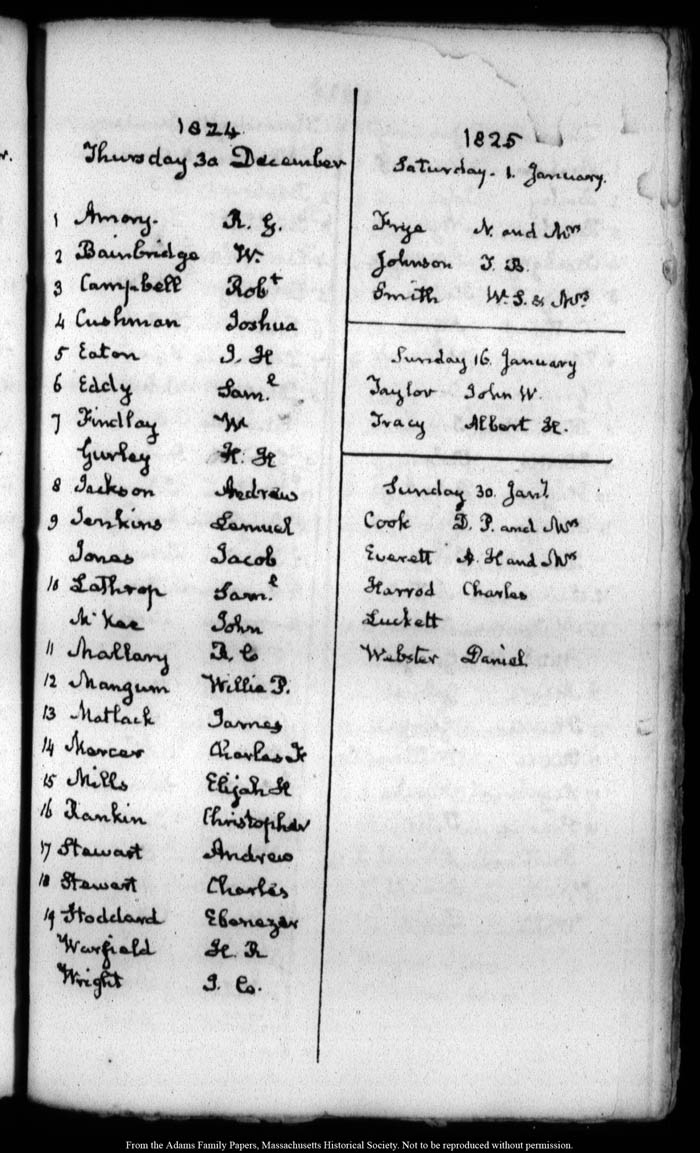 r.
1824
Thursday 30 December
1 Amory. R. G.
2 Bainbridge W.
3 Campbell Robt
4 Cushman Joshua
5 Eaton J. H
6 Eddy Saml
7 Findlay W.
Gurley H. H
8 Jackson Andrew
9 Jenkins Lemuel
Jones Jacob
10 Lathrop Saml
McKee John
11 Mallary R. C
12 Mangum Willie P.
13 Matlack James
14 Mercer Charles F
15 Mills Elijah H
16 Rankin Christopher
17 Stewart Andrew
18 Stewart Charles
19 Stoddard Ebenezer
Warfield H. R
Wright J. C.
1825
Saturday. 1. January.
Frye N. and Mrs
Johnson J. B.
Smith W. S. & Mrs
Sunday 16. January
Taylor John W.
Tracy Albert H.
Sunday 30. Jany.
Cook D. P. and Mrs
Everett A. H and Mrs
Harrod Charles
Luckett
Webster Daniel
From the Adams Family Papers, Massachusetts Historical Society. Not to be reproduced without permission.